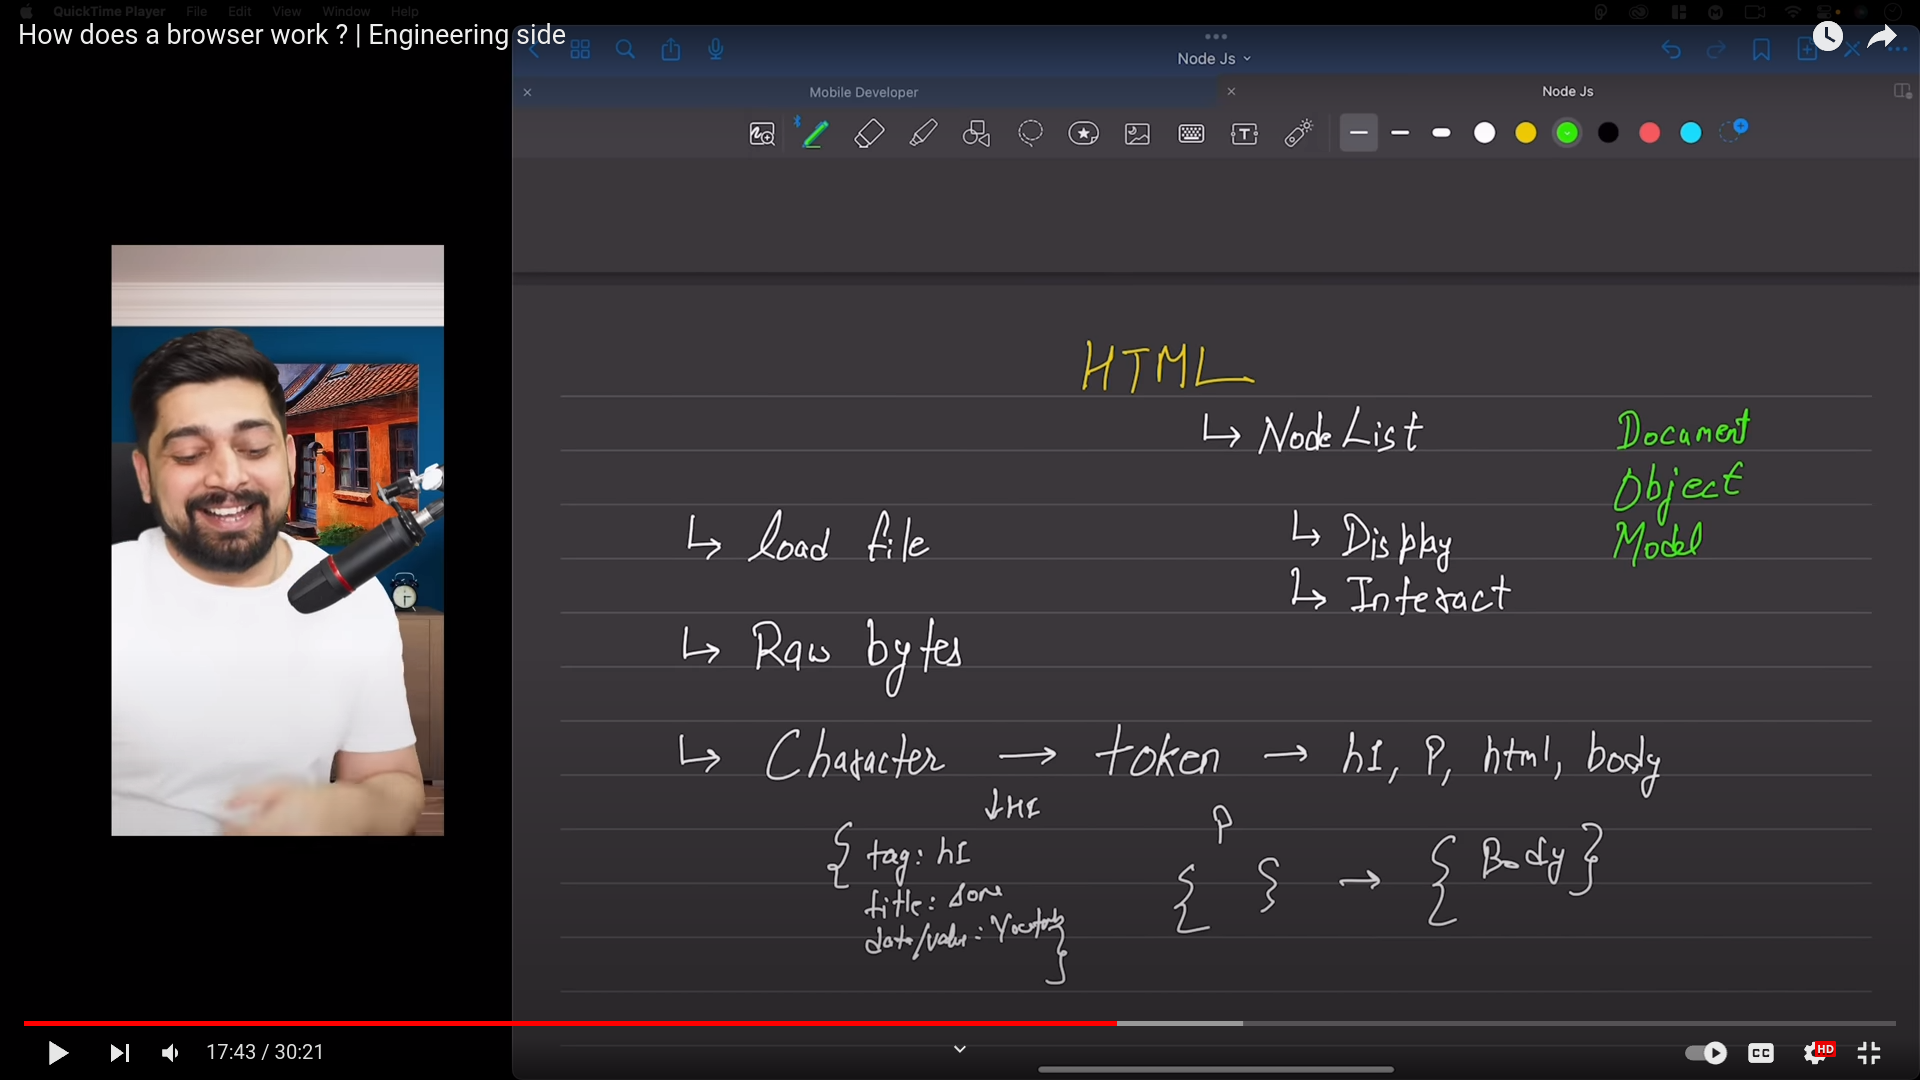 QuickTime Player File Edit View Window Help
How does a browser work ? | Engineering side
Node Js
Mobile Developer
Node Js
HTML
↳ Node List
Document
Object
Model
↳ load file
↳ Display
↳ Interact
↳ Raw bytes
↳ Character → token → h1, P, html, body
↓ H1
P
{ tag: h1
title: some
date/value:
}
{ } → { Body }
17:43 / 30:21
CC
HD